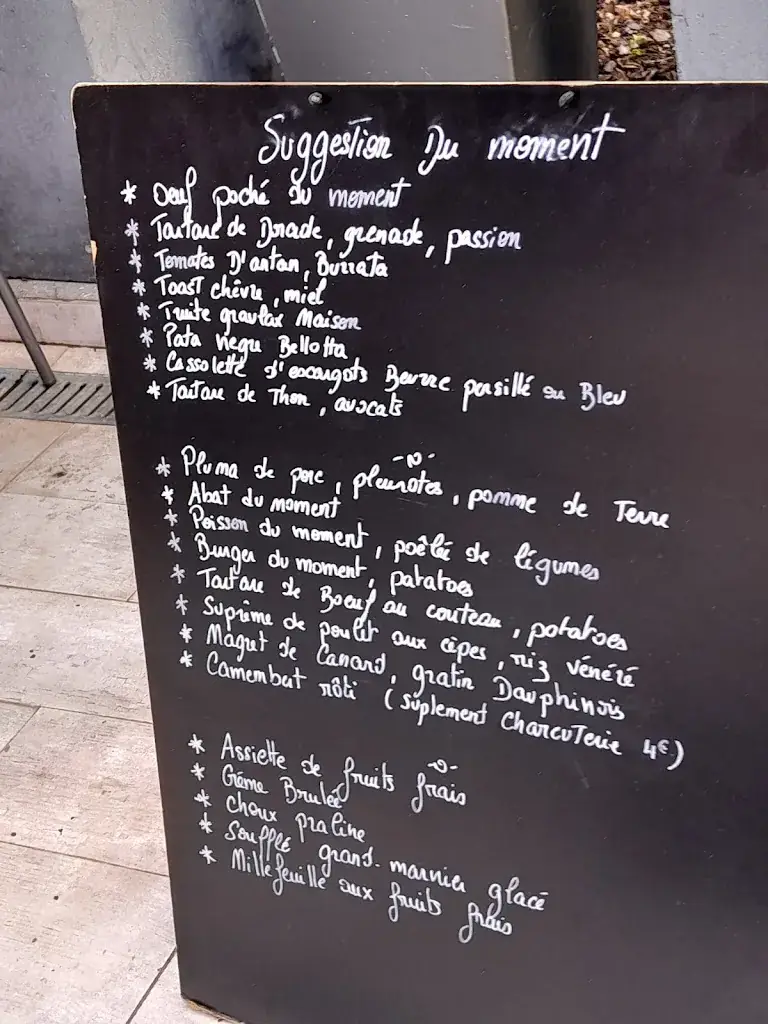 Suggestion Du moment
* Oeuf poché du moment
* Tartare de Dorade, grenade, passion
* Tomates D'antan, Burrata
* Toast chèvre, miel
* Truite gravlax Maison
* Pata negra Bellotta
* Cassolette d'escargots Beurre persillé ou Bleu
* Tartare de Thon, avocats
* Pluma de porc, pleurotes, pomme de Terre
* Abat du moment
* Poisson du moment, poêlée de légumes
* Burger du moment, patatoes
* Tartare de Boeuf au couteau, potatoes
* Suprême de poulet aux cèpes, riz vénéré
* Magret de Canard, gratin Dauphinois
* Camembert rôti (suplement Charcuterie 4€)
* Assiette de fruits frais
* Crème Brulée
* Choux praline
* Soufflé grand-marnier glacé
* Millefeuille aux fruits frais